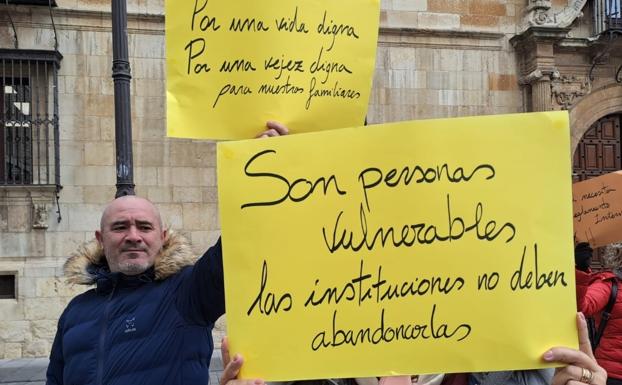 Por una vida digna
Por una vejez digna
para nuestros familiares
Son personas
vulnerables
las instituciones no deben
abandonarlas
necesito